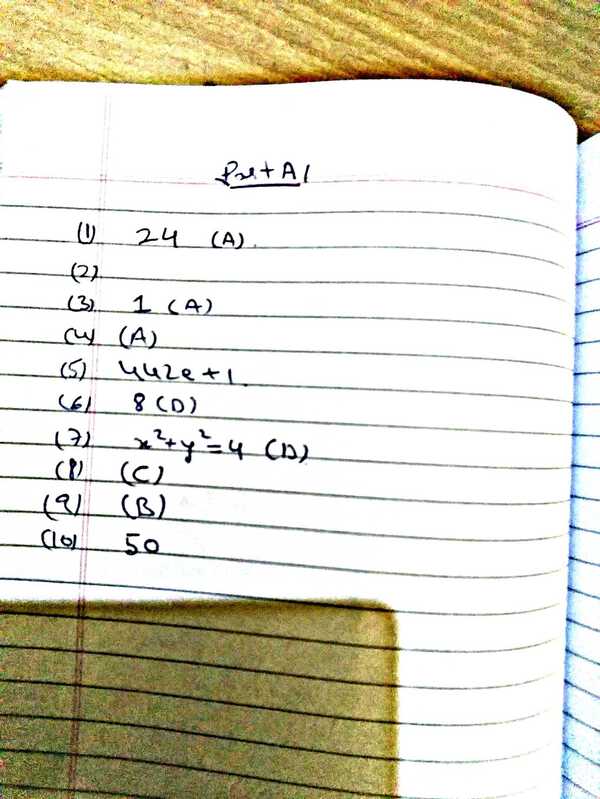 Part A1
(1) 24 (A).
(2)
(3) 1 (A)
(4) (A)
(5) 442e+1.
(6) 8 (D)
(7) x²+y²=4 (D)
(8) (C)
(9) (B)
(10) 50